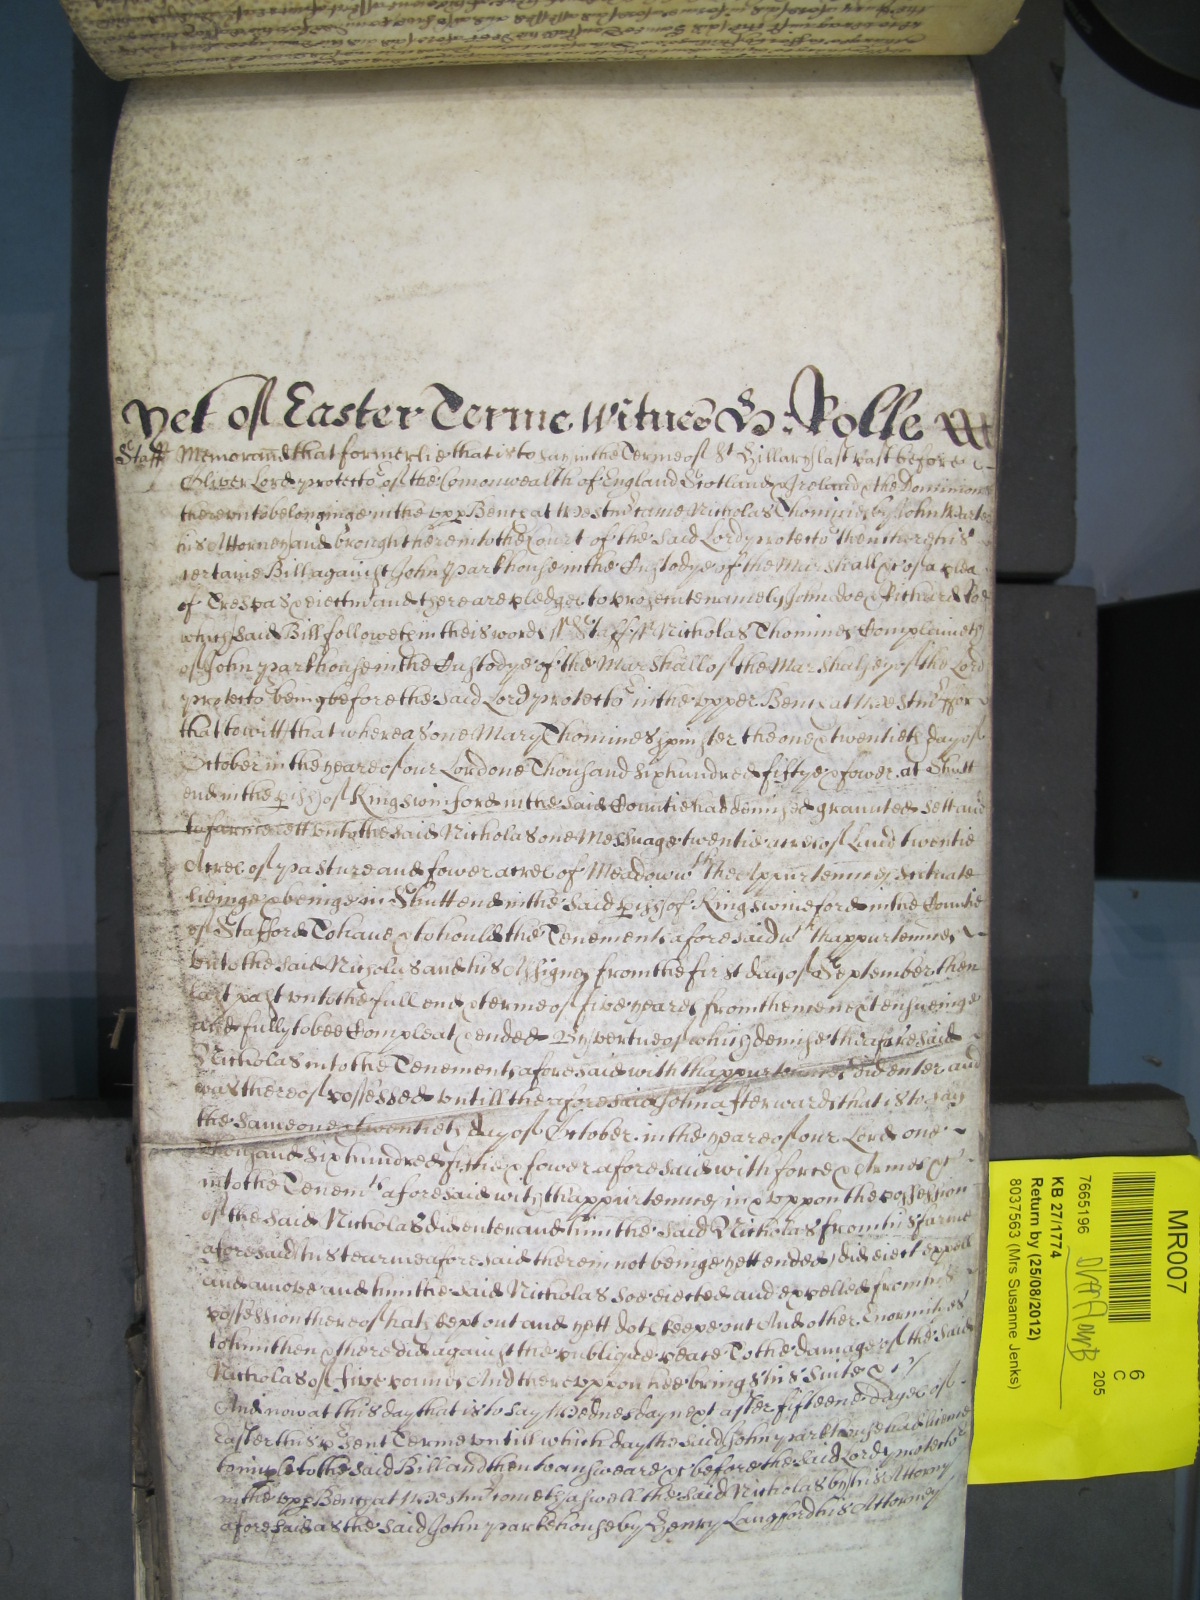 yet of Easter Terme Witnes H: Rolle
Staff Memorand that formerlie that is to say in the Terme of St Hillary last past before
Oliver Lord protector of the Comonwealth of England Scotland & Ireland & the Dominions
thereunto belonginge in the upp Bench at Westmr came Nicholas Thomines by John
his Attorney and brought here into the Court of the said Lord protector then there his
certaine Bill against John Parkhouse in the Custodye of the Marshall &c of a plea
of Trespas & eiectmt and there are pledges to prosecute namely John doe & Richard Roe
which said Bill followeth in theis words ss Staff ss Nicholas Thomines Complaineth
of John Parkhouse in the Custodye of the Marshall of the Marshalsey of the Lord
protector being before the said Lord protector in the upper Bench at Westmr ffor
that to witt that whereas one Mary Thomines Spinster the one & twentieth day of
October in the yeare of our Lord one Thousand six hundred fiftye & fower at Shutt
end in the pish of Kingswinford in the said Countie had demised graunted sett and
to farme lett unto the said Nicholas one Messuage twentie acres of Land twentie
Acres of pasture and fower acres of Meadow wth the Appurtennces scituate
lieinge & beinge in Shuttend in the said pish of Kingswineford in the Countie
of Stafford To have & to hould the Tenements aforesaid wth thappurtennces
unto the said Nicholas and his Assignes from the first day of September then
last past unto the full end & terme of five yeares from thence next ensueinge
and fully to bee Compleat & ended By vertue of which demise the aforesaid
Nicholas into the Tenements aforesaid with thappurtennces did enter and
was thereof possessed untill the aforesaid John afterwards that is to say
the same one & twentieth day of October in the yeare of our Lord one
Thousand six hundred fiftie & fower aforesaid with force & Armes &c
into the Tenemts aforesaid with thappurtennces in & uppon the possession
of the said Nicholas did enter and him the said Nicholas from his farme
aforesaid (his tearme aforesaid therein not beinge yett ended) did eiect expell
and amove and him the said Nicholas soe eiected and expelled from his
possession thereof hath kept out and yett doth keepe out And other Enormities
to him then & there did against the publique peace To the damage of the said
Nicholas of five pounds And thereuppon hee brings his suite &c
And now at this day that is to say Wednesday next after fifteene dayes of
Easter this psent Terme untill which day the said John Parkhouse had licence
to imple to the said Bill and then to answeare &c before the said Lord protector
in the upp Bench at Westmr cometh aswell the said Nicholas by his Attorny
aforesaid as the said John Parkehouse by Henry Langford his Attorney
MR007
6
C
205
7665196
KB 27/1774
Return by (25/08/2012)
8037563 (Mrs Susanne Jenks)